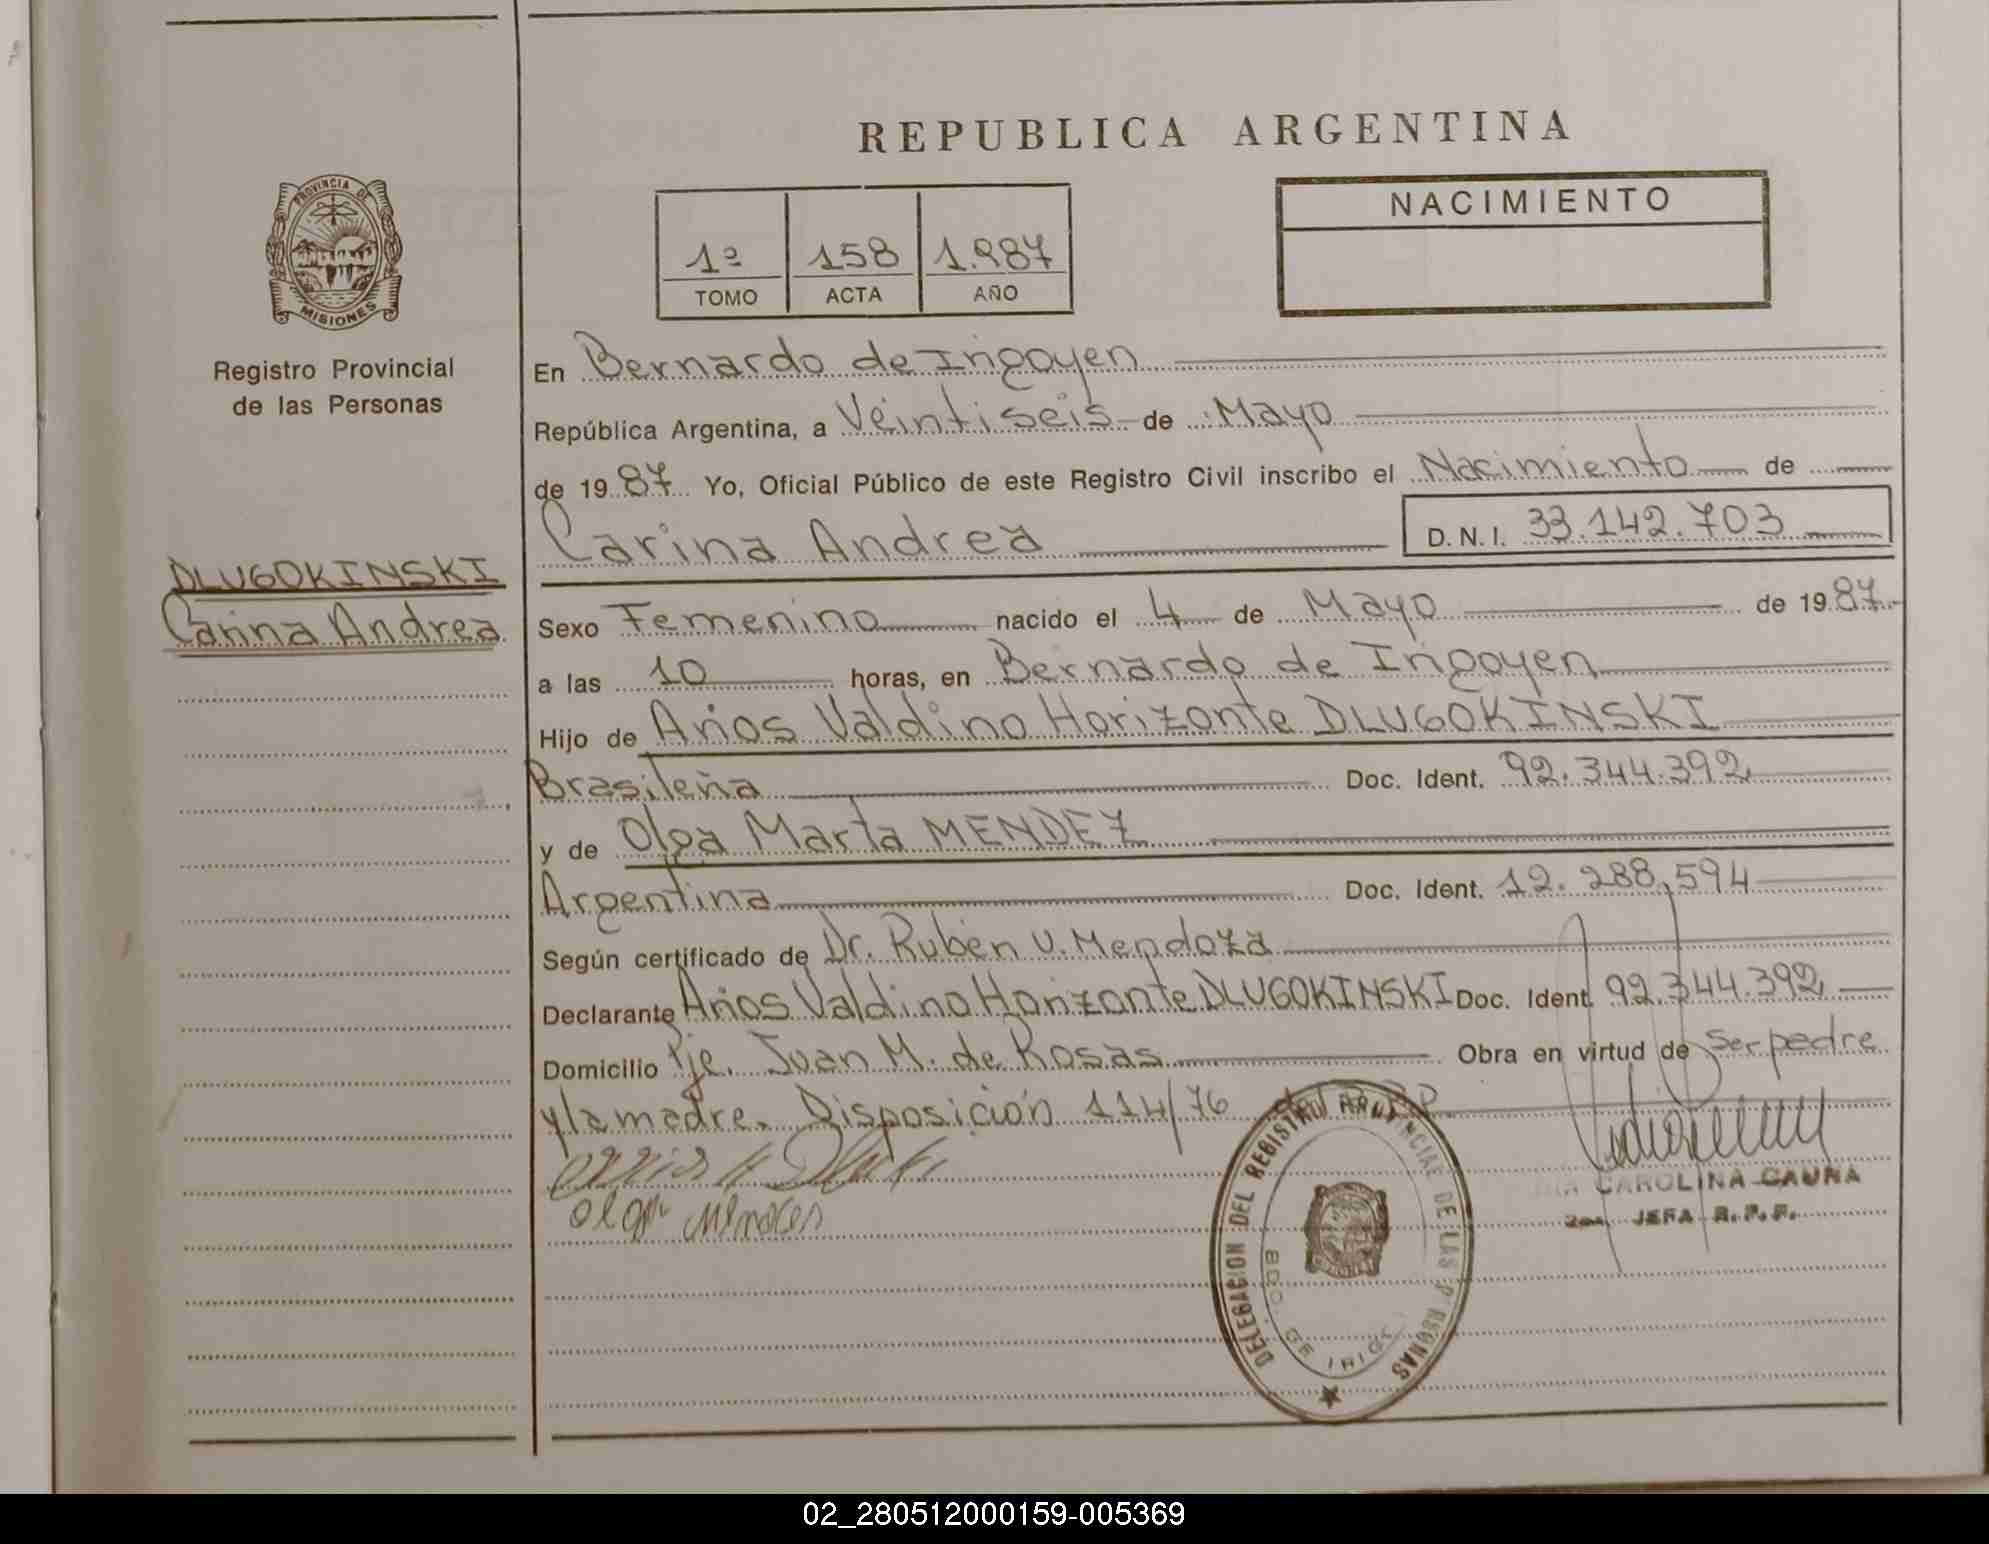 REPUBLICA ARGENTINA
PROVINCIA DE
MISIONES
Registro Provincial
de las Personas
1º 158 1.987
TOMO ACTA AÑO
NACIMIENTO
En Bernardo de Irigoyen
República Argentina, a Veintiseis de Mayo
de 1987 Yo, Oficial Público de este Registro Civil inscribo el Nacimiento de
Carina Andrea D.N.I. 33.142.703
DLUGOKINSKI
Carina Andrea
Sexo Femenino nacido el 4 de Mayo de 1987
a las 10 horas, en Bernardo de Irigoyen
Hijo de Arios Valdino Horizonte DLUGOKINSKI
Brasileña Doc. Ident. 92.344.392
y de Olga Marta MENDEZ
Argentina Doc. Ident. 12.288.594
Según certificado de Dr. Rubén V. Mendoza
Declarante Arios Valdino Horizonte DLUGOKINSKI Doc. Ident. 92.344.392
Domicilio Pje. Juan M. de Rosas Obra en virtud de Ser padre
y la madre. Disposición 114/76 del
olga Mendes
CAROLINA GAUNA
JEFA R.P.P.
DELEGACION DEL REGISTRO PROVINCIAL DE LAS PERSONAS
BDO. DE IRIGOYEN
02_280512000159-005369